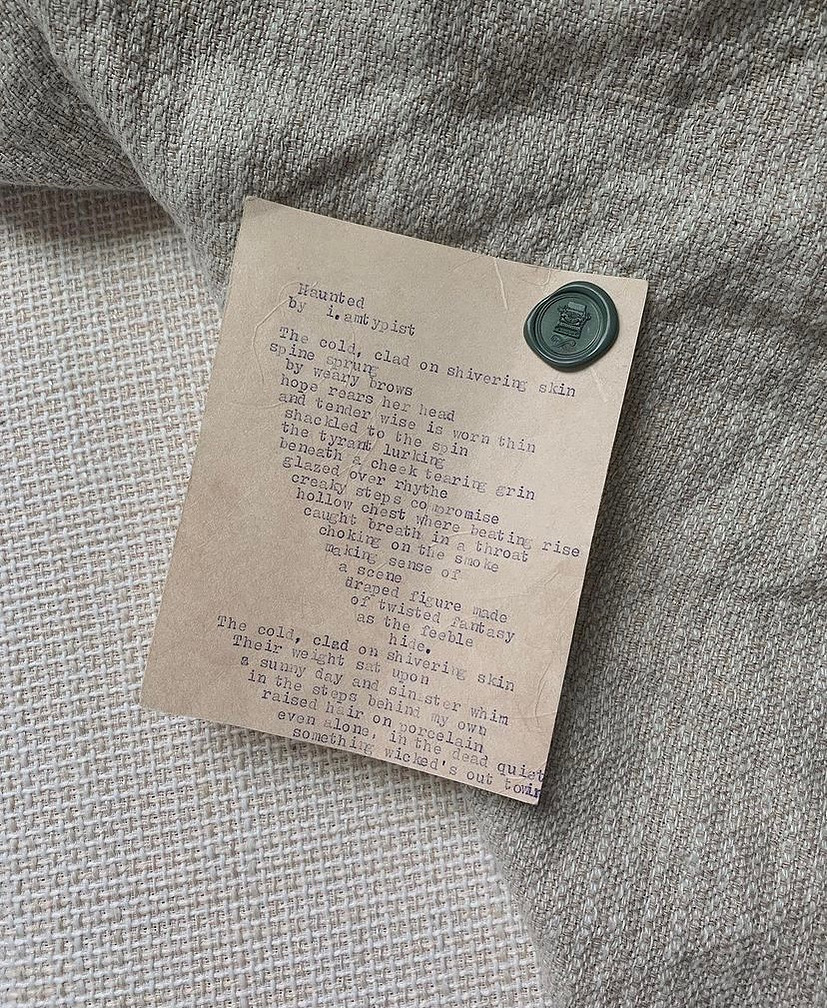 Haunted
by i.amtypist
The cold, clad on shivering skin
spine sprung
by weary brows
hope rears her head
and tender wise is worn thin
shackled to the spin
the tyrant lurking
beneath a cheek tearing grin
glazed over rhythe
creaky steps compromise
hollow chest where beating rise
caught breath in a throat
choking on the smoke
making sense of
a scene
draped figure made
of twisted fantasy
as the feeble
hide.
The cold, clad on shivering skin
Their weight sat upon
a sunny day and sinister whim
in the steps behind my own
raised hair on porcelain
even alone, in the dead quiet
something wicked's out towin